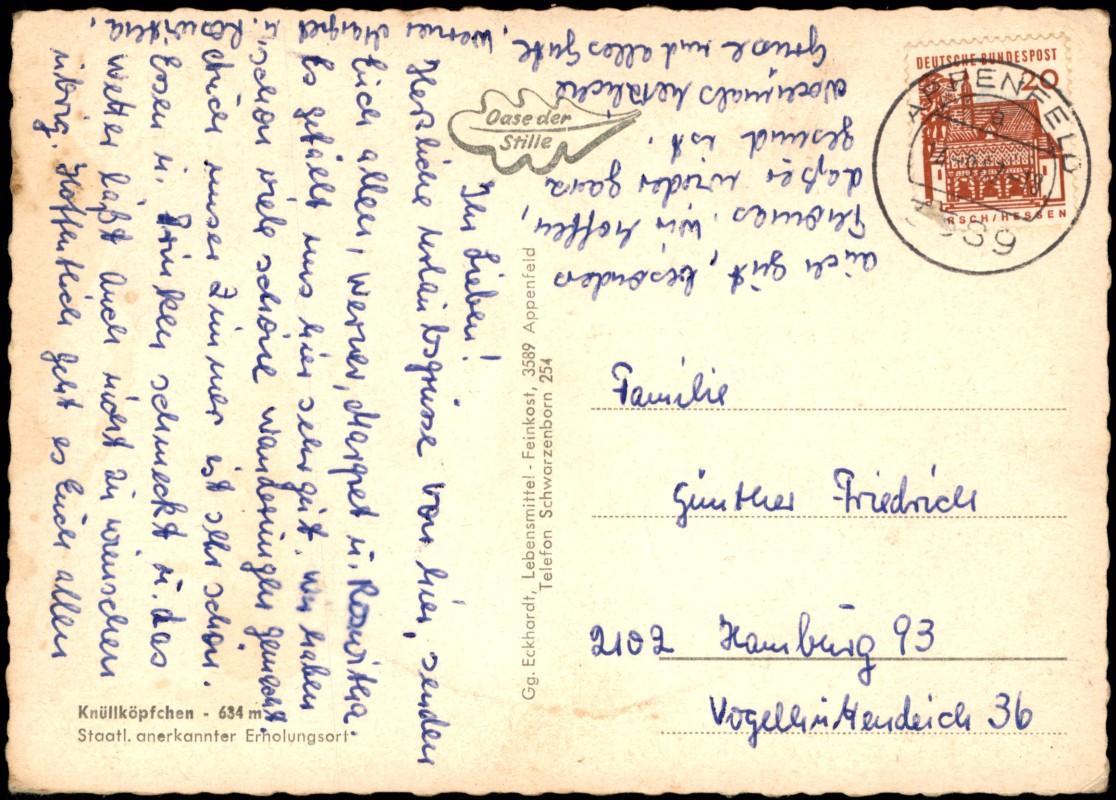 Oase der
Stille
Ihr Lieben!
Herzliche Urlaubsgrüsse von hier, senden
Euch allen, Werner, Margret u. Roswitha.
Es gefällt uns hier sehr gut. Wir haben
schon viele schöne Wanderungen gemacht.
Auch unser Zimmer ist sehr schön.
Essen u. Trinken schmeckt u. das
Wetter läßt auch nicht zu wünschen
übrig. Hoffentlich geht es Euch allen
auch gut, besonders
Thomas. Wir hoffen,
daß er wieder ganz
gesund ist.
Nochmals herzliche
Grüße und alles Gute, Werner Margret u. Roswitha.
Knüllköpfchen - 634 m
Staatl. anerkannter Erholungsort
Gg. Eckhardt, Lebensmittel - Feinkost, 3589 Appenfeld
Telefon Schwarzenborn 254
DEUTSCHE BUNDESPOST
20
RSCH/HESSEN
APPENFELD
a
3589
Familie
Günther Friedrich
2102 Hamburg 93
Vogelhüttendeich 36